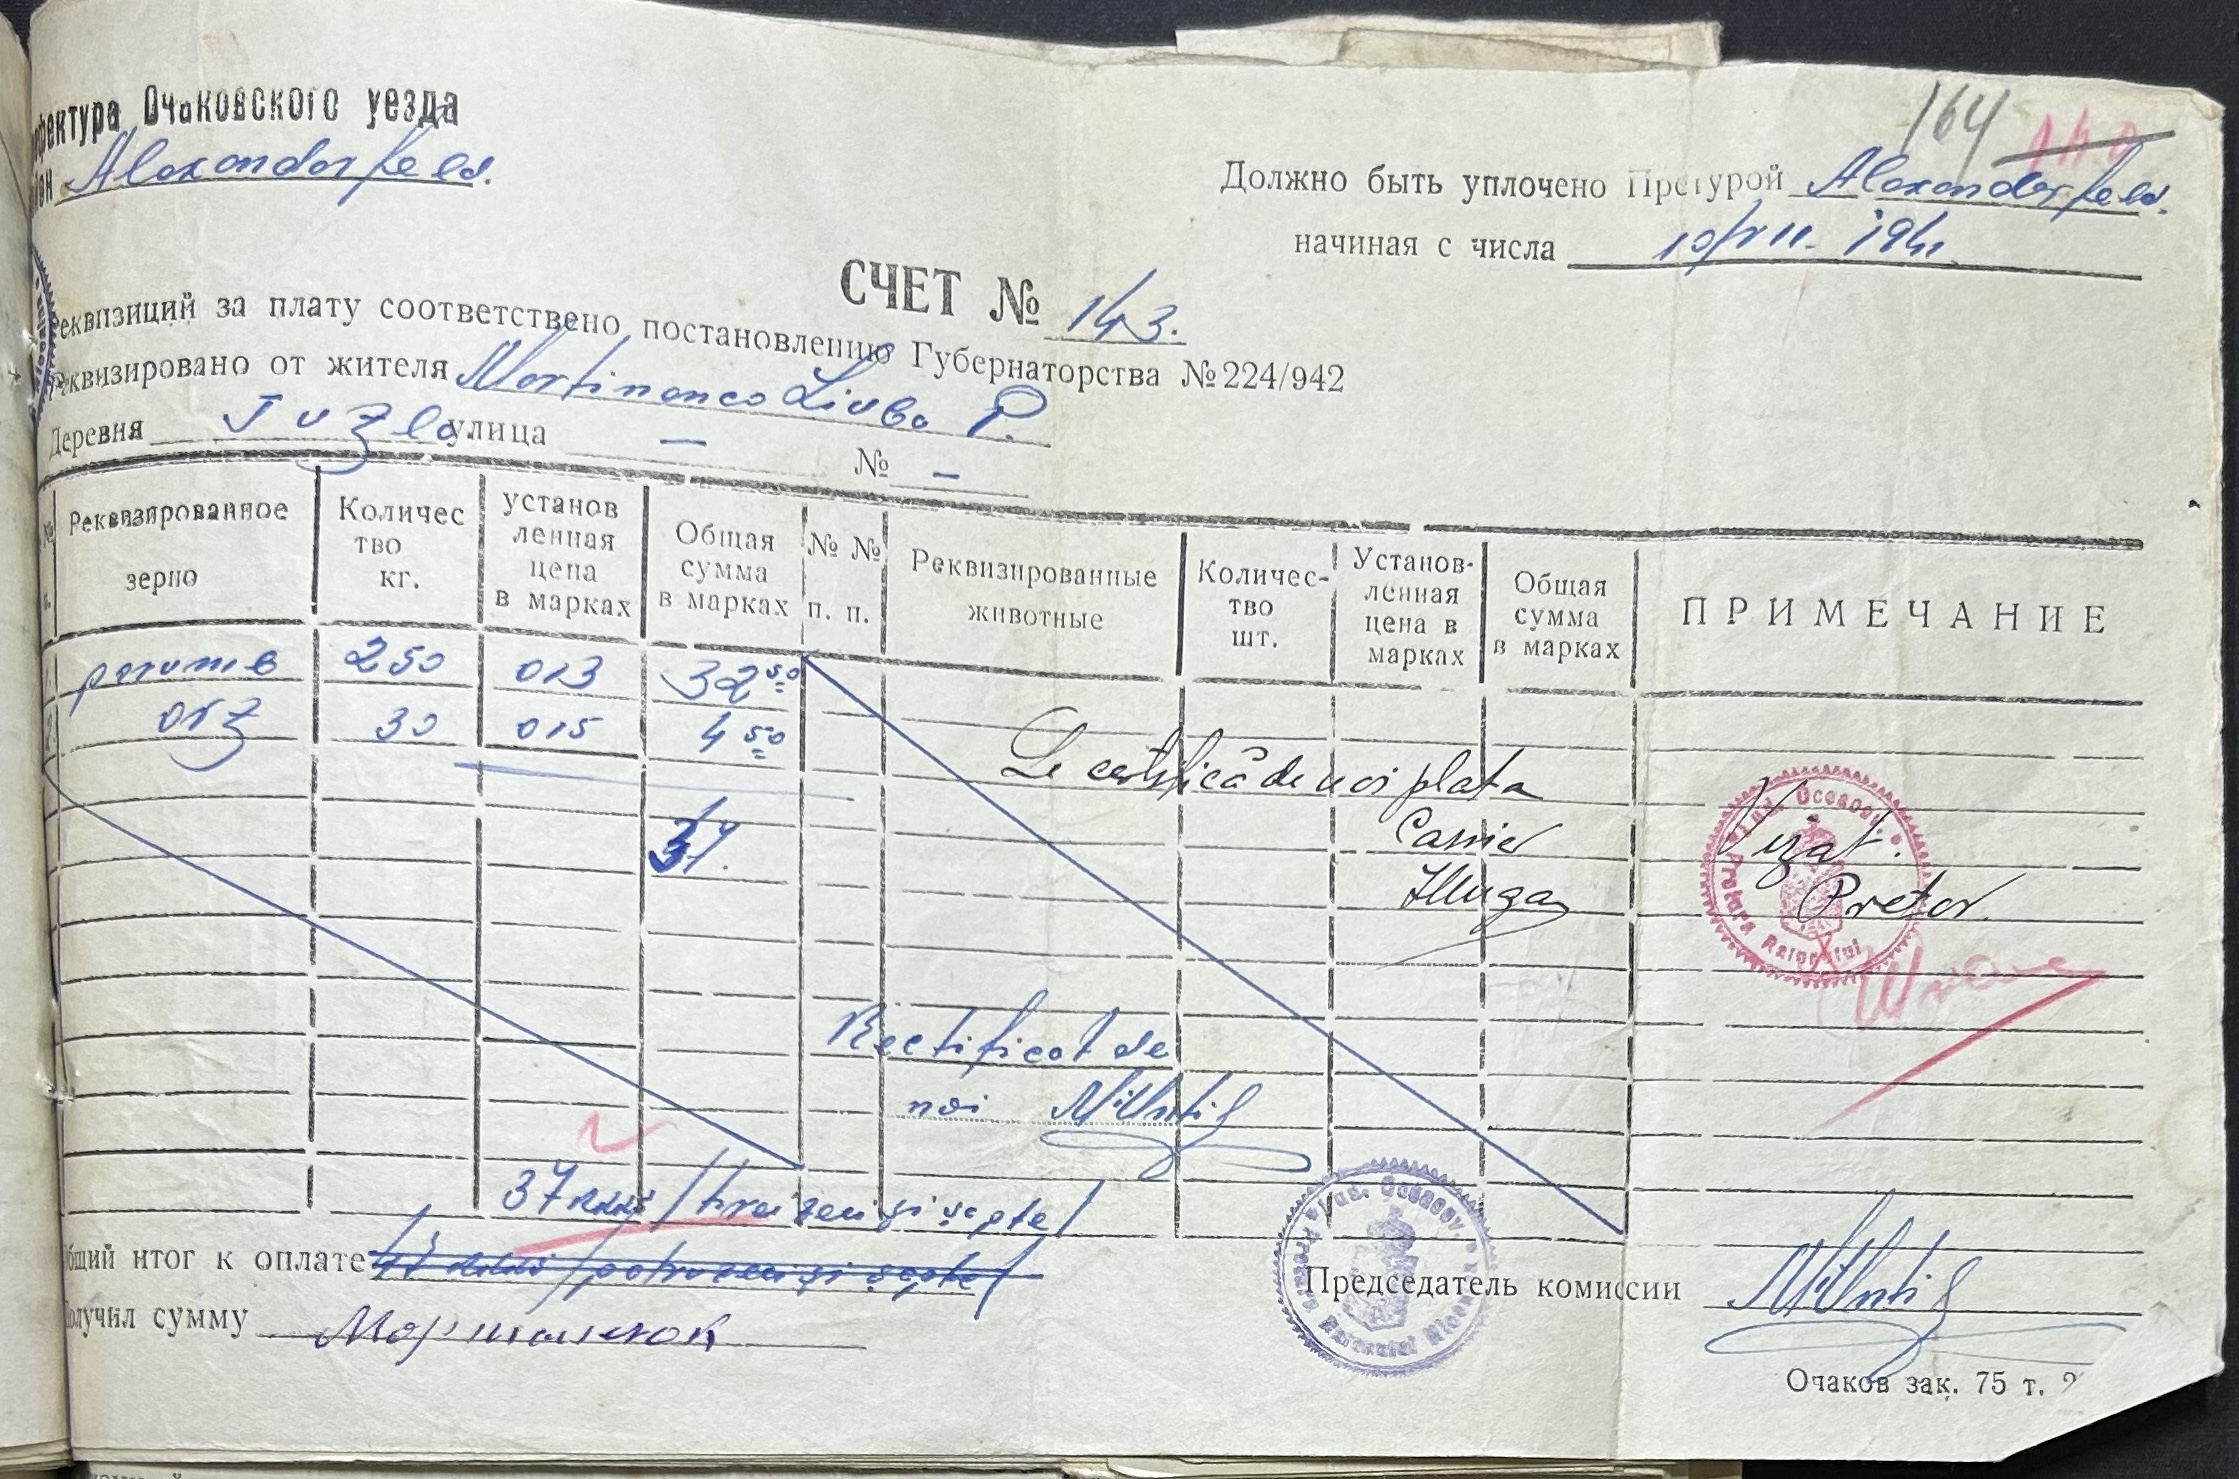 фектура Очаковского уезда
йон Alexandorfeld.
164
140
Должно быть уплочено Претурой Alexandorfeld.
начиная с числа 10/VII. 194
СЧЕТ № 143.
реквизиций за плату соответствено постановлению Губернаторства № 224/942
Реквизировано от жителя Martinenco Liuba P.
Деревня Tuzla улица — № —
Реквизированное зерно
Количес тво кг.
установ ленная цена в марках
Общая сумма в марках
№ № п. п.
Реквизированные животные
Количес- тво шт.
Установ- ленная цена в марках
Общая сумма в марках
ПРИМЕЧАНИЕ
1. porumb 250 013 32 50
2. orz 30 015 4 50
37.
Se certifică de noi plata
Casier
Vizat.
Pretor.
Jud. Oceacov. Pretura Raionului
Rectificat de
noi
37 /treizeci și șapte/
Общий итог к оплате 47 /patruzeci și șapte/
Получил сумму
Jud. Oceacov Pretura
Председатель комиссии
Очаков зак. 75 т.